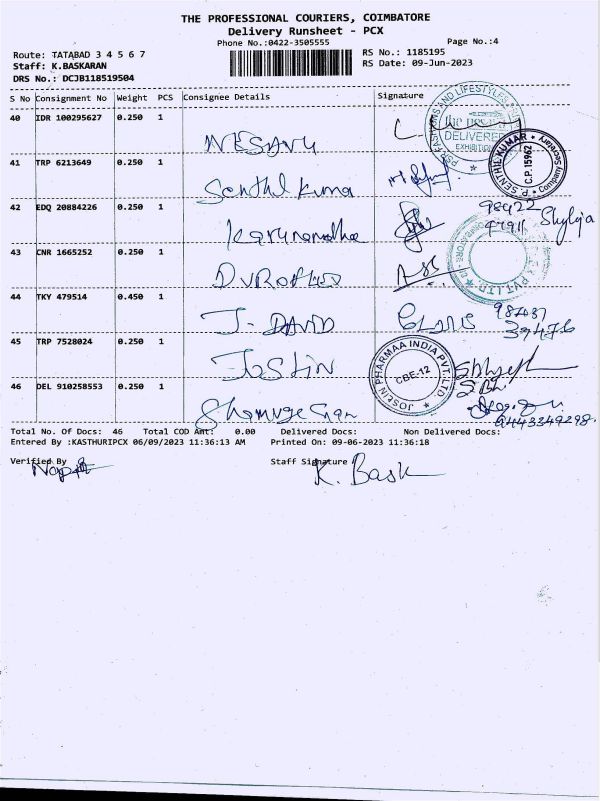 THE PROFESSIONAL COURIERS, COIMBATORE
Delivery Runsheet - PCX
Phone No.:0422-3505555
Page No.:4
Route: TATABAD 3 4 5 6 7
RS No.: 1185195
Staff: K.BASKARAN
RS Date: 09-Jun-2023
DRS No.: DCJB118519504
S No Consignment No Weight PCS Consignee Details Signature
40 IDR 100295627 0.250 1
NESAVU
DELIVERED
41 TRP 6213649 0.250 1
Senthil Kuma
P. SENTHIL KUMAR * Company Secretary * C.P. 15962
42 EDQ 20884226 0.250 1
Karunanidhe
98422
Shylaja
43 CNR 1665252 0.250 1
PVT.LTD
44 TKY 479514 0.450 1
J. DAVID
987037
39476
45 TRP 7528024 0.250 1
Jostin
JOSTIN PHARMAA INDIA PVT. LTD * CBE-12
46 DEL 910258553 0.250 1
9443349298
Total No. Of Docs: 46 Total COD Amt: 0.00 Delivered Docs: Non Delivered Docs:
Entered By :KASTHURIPCX 06/09/2023 11:36:13 AM Printed On: 09-06-2023 11:36:18
Verified By Staff Signature
K. Bask